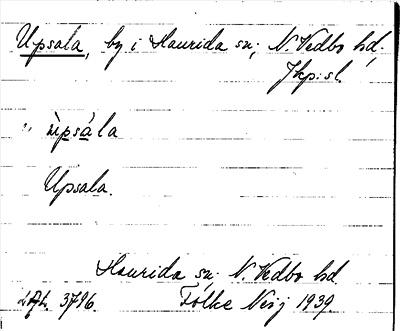 Upsala, by i Haurida sn; N. Vedbo hd.
Jkp:s l.
ùpsála
Upsala.
Haurida sn; N. Vedbo hd.
3796. Folke Neij 1939.